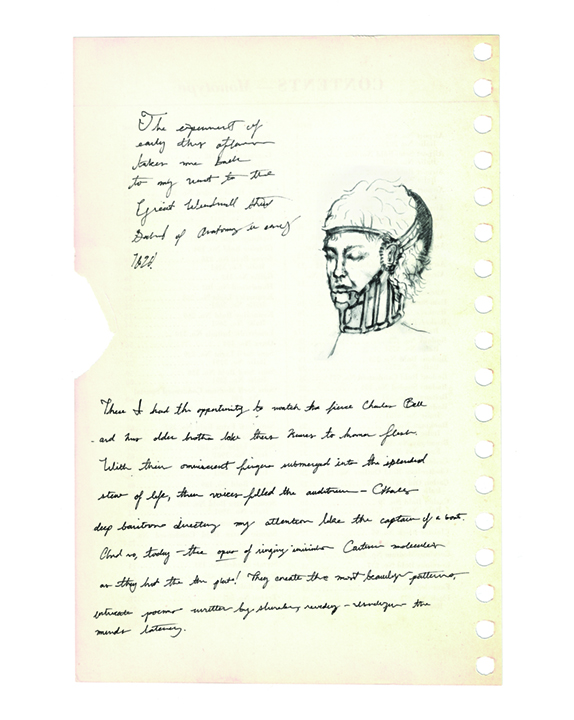 The experiment of
early this afternoon
takes me back
to my visit to the
Great Windmill Street
School of Anatomy in early
There I had the opportunity to watch the fierce Charles Bell
and his older brother take their knives to human flesh.
With their omniscient fingers submerged into the splendid
stew of life, their voices filled the auditorium – Charles
deep baritone directing my attention like the captain of a boat.
And so, today – the opus of singing
as they hit the tin plate! They create the most beautiful patterns,
intricate poems written by
minds latency.